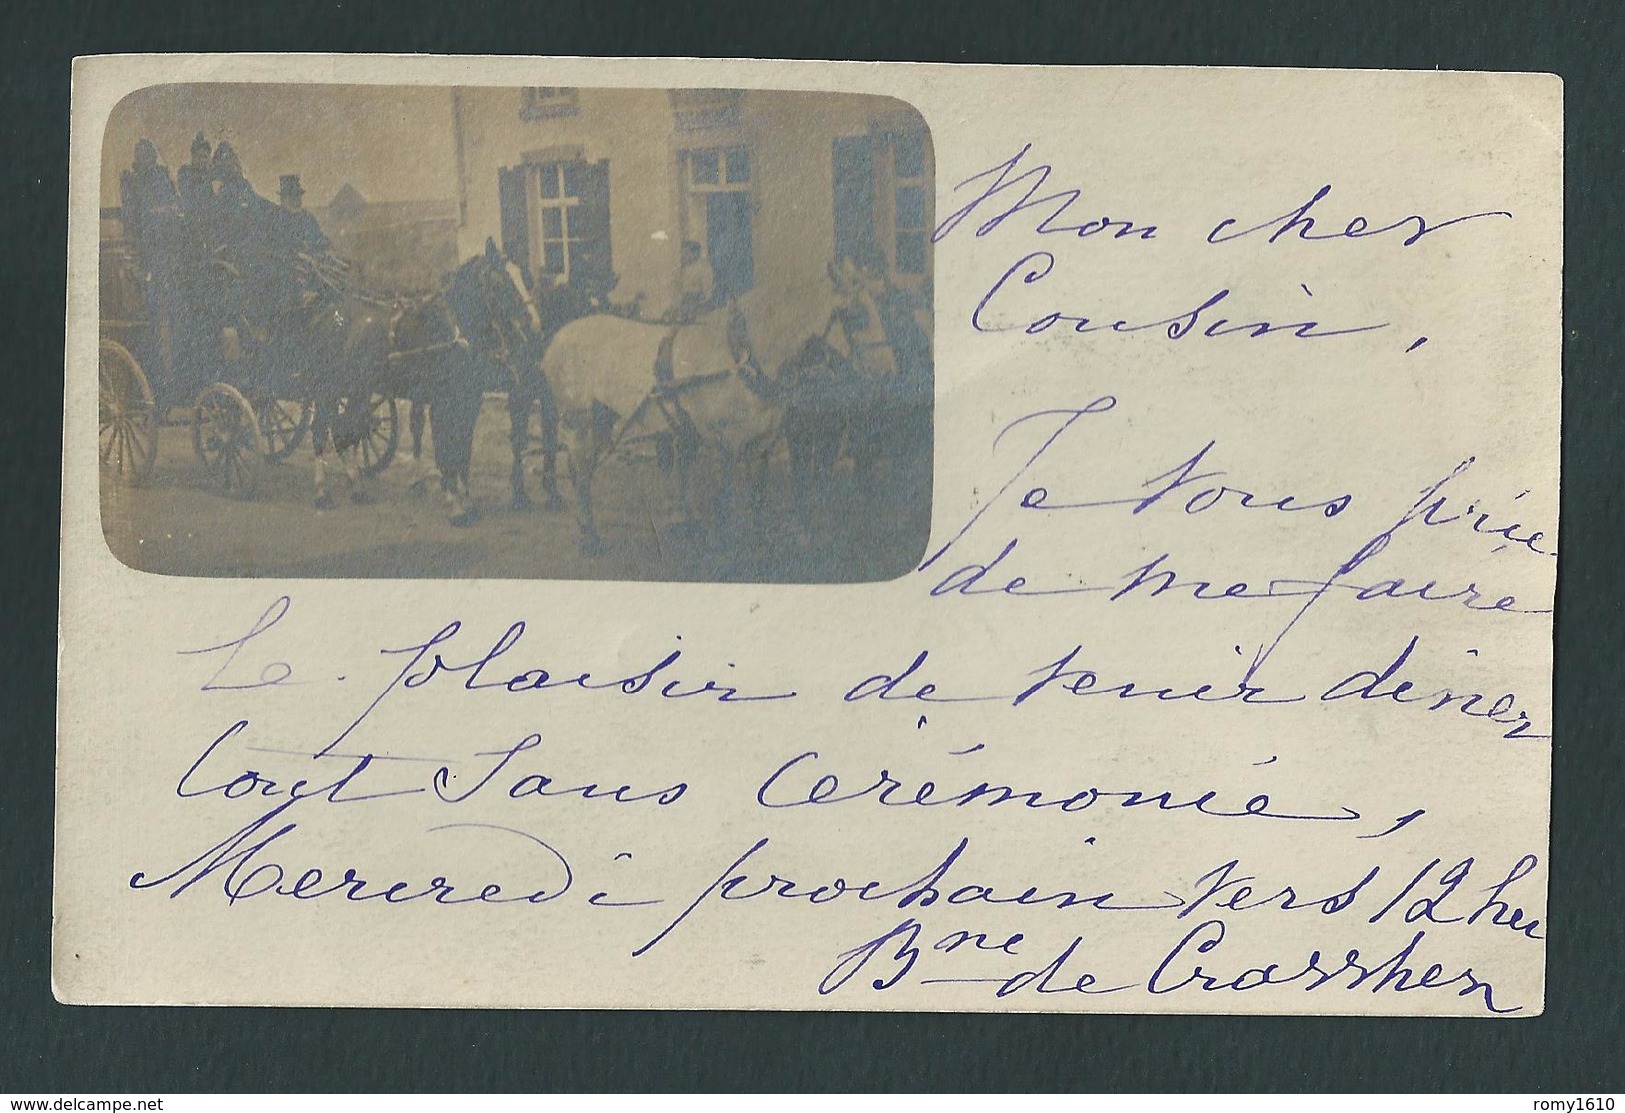 Mon cher
Cousin,
Je vous prie
de me faire
le plaisir de venir diner
tout sans cérémonie,
Mercredi prochain vers 12 heu
Bne de Crassher
delcampe.net
romy1610